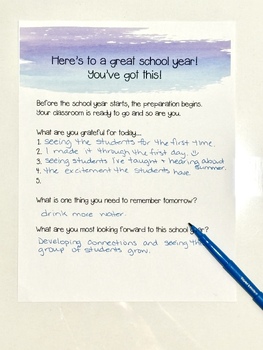 Here's to a great school year!
You've got this!
Before the school year starts, the preparation begins.
Your classroom is ready to go and so are you.
What are you grateful for today...
1. seeing the students for the first time.
2. I made it through the first day. ☺
3. seeing students I've taught + hearing about summer.
4. the excitement the students have.
5.
What is one thing you need to remember tomorrow?
drink more water.
What are you most looking forward to this school year?
Developing connections and seeing the
group of students grow.